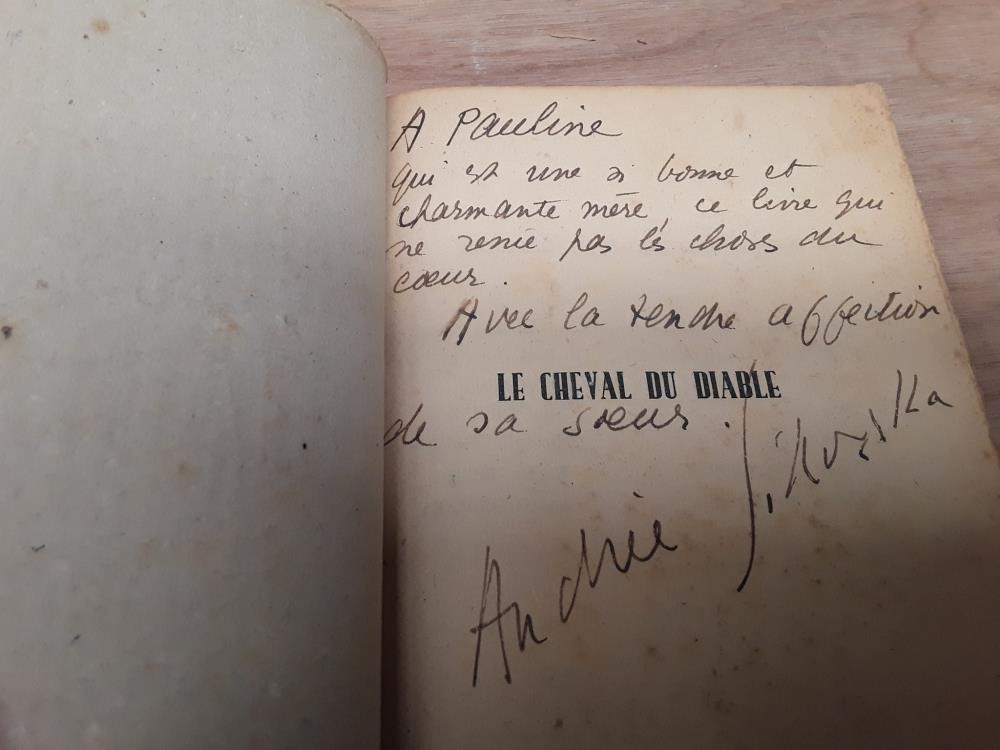 A Pauline
qui est une si bonne et
charmante mère, ce livre qui
ne renie pas les choses du
cœur.
Avec la tendre affection
LE CHEVAL DU DIABLE
de sa sœur.
Andrée Sikorska